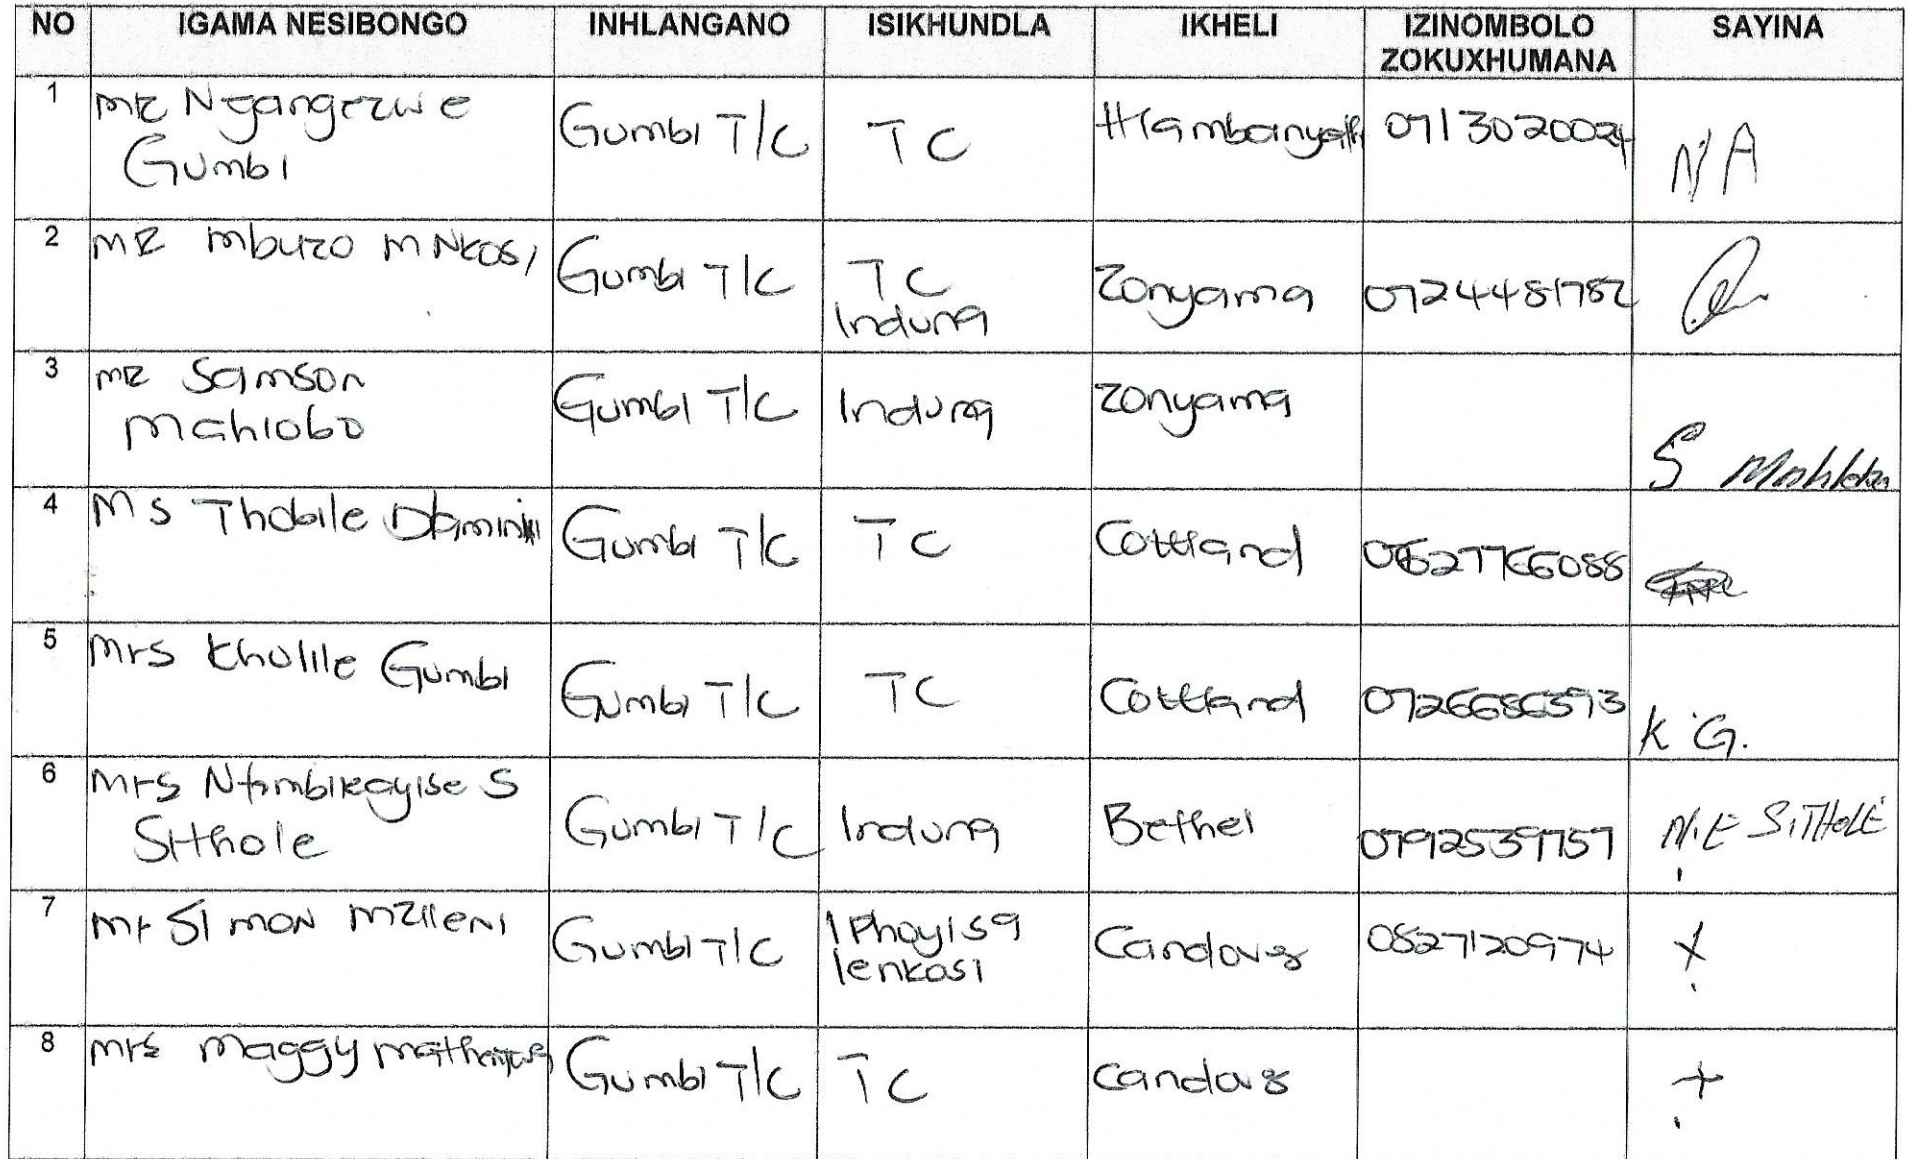 NO IGAMA NESIBONGO INHLANGANO ISIKHUNDLA IKHELI IZINOMBOLO ZOKUXHUMANA SAYINA
1 MR Ngangezwe Gumbi Gumbi T/C TC 0713020024 NA
2 MR Mbuzo M Nkosi Gumbi T/C TC Induna Zonyama 0724481782
3 MR Samson Mahlobo Gumbi T/C Induna Zonyama S Mahlobo
4 Ms Thobile Dlamini Gumbi T/C TC Cottland 0627766088
5 Mrs Kholile Gumbi Gumbi T/C TC Cottland 0726686593 K.G.
6 Mrs Ntombikayise S Sithole Gumbi T/C Induna Bethel 0792539757 N.E SITHOLE
7 Mr Simon Mzileni Gumbi T/C IPhoyisa lenkosi Candover 0827120974 X
8 Mrs Maggy Gumbi T/C TC Candover +